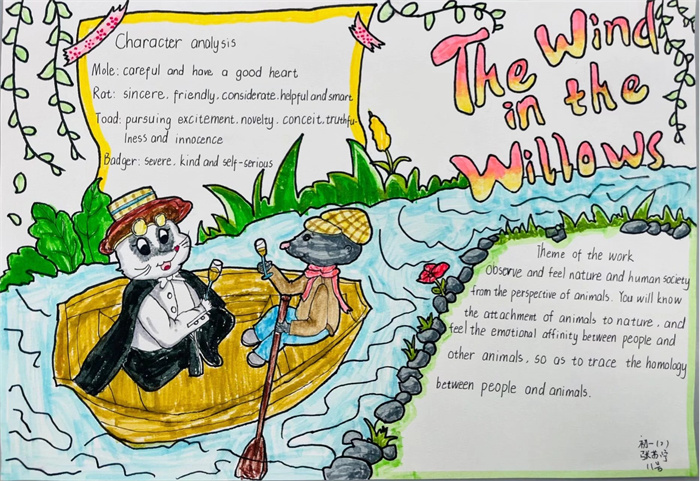 The Wind
in the
Willows
Character analysis
Mole: careful and have a good heart
Rat: sincere, friendly, considerate, helpful and smart
Toad: pursuing excitement, novelty, conceit, truthfu-
lness and innocence
Badger: severe, kind and self-serious
Theme of the work
Observe and feel nature and human society
from the perspective of animals. You will know
the attachment of animals to nature, and
feel the emotional affinity between people and
other animals, so as to trace the homology
between people and animals.
初一(2)
11号